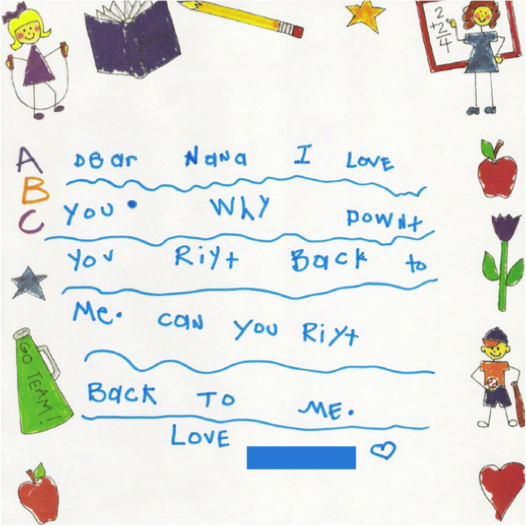 2
+2
4
A
B
C
Dear Nana I Love
You. Why Downt
You Riyt Back to
Me. Can you Riyt
Back To Me.
Love
GO TEAM!